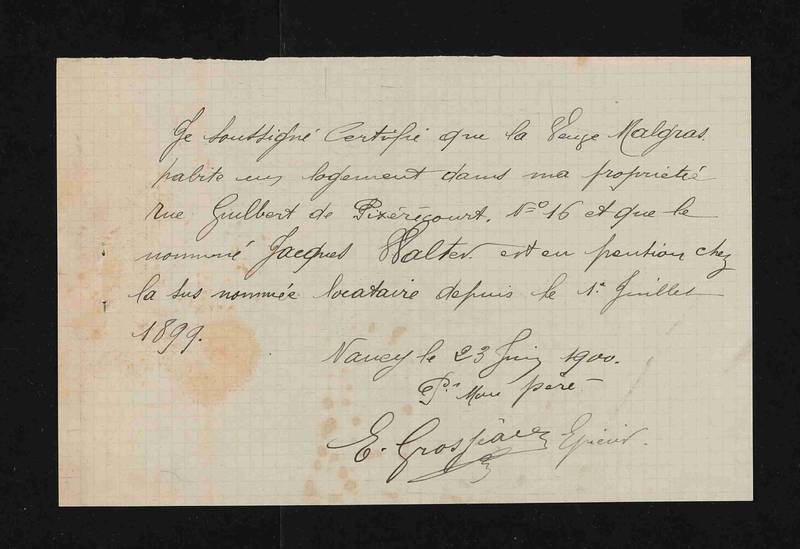 Je soussigné Certifie que la Veuve Malgras
habite un logement dans ma propriété
rue Guilbert de Pixérécourt. N=o 16 et que le
nommé Jacques Walter est en pention chez
la sus nommée locataire depuis le 1er Juillet
1899.
Nancy le 23 Juin 1900.
Pr Mon père
E. Grosjean Epicier.